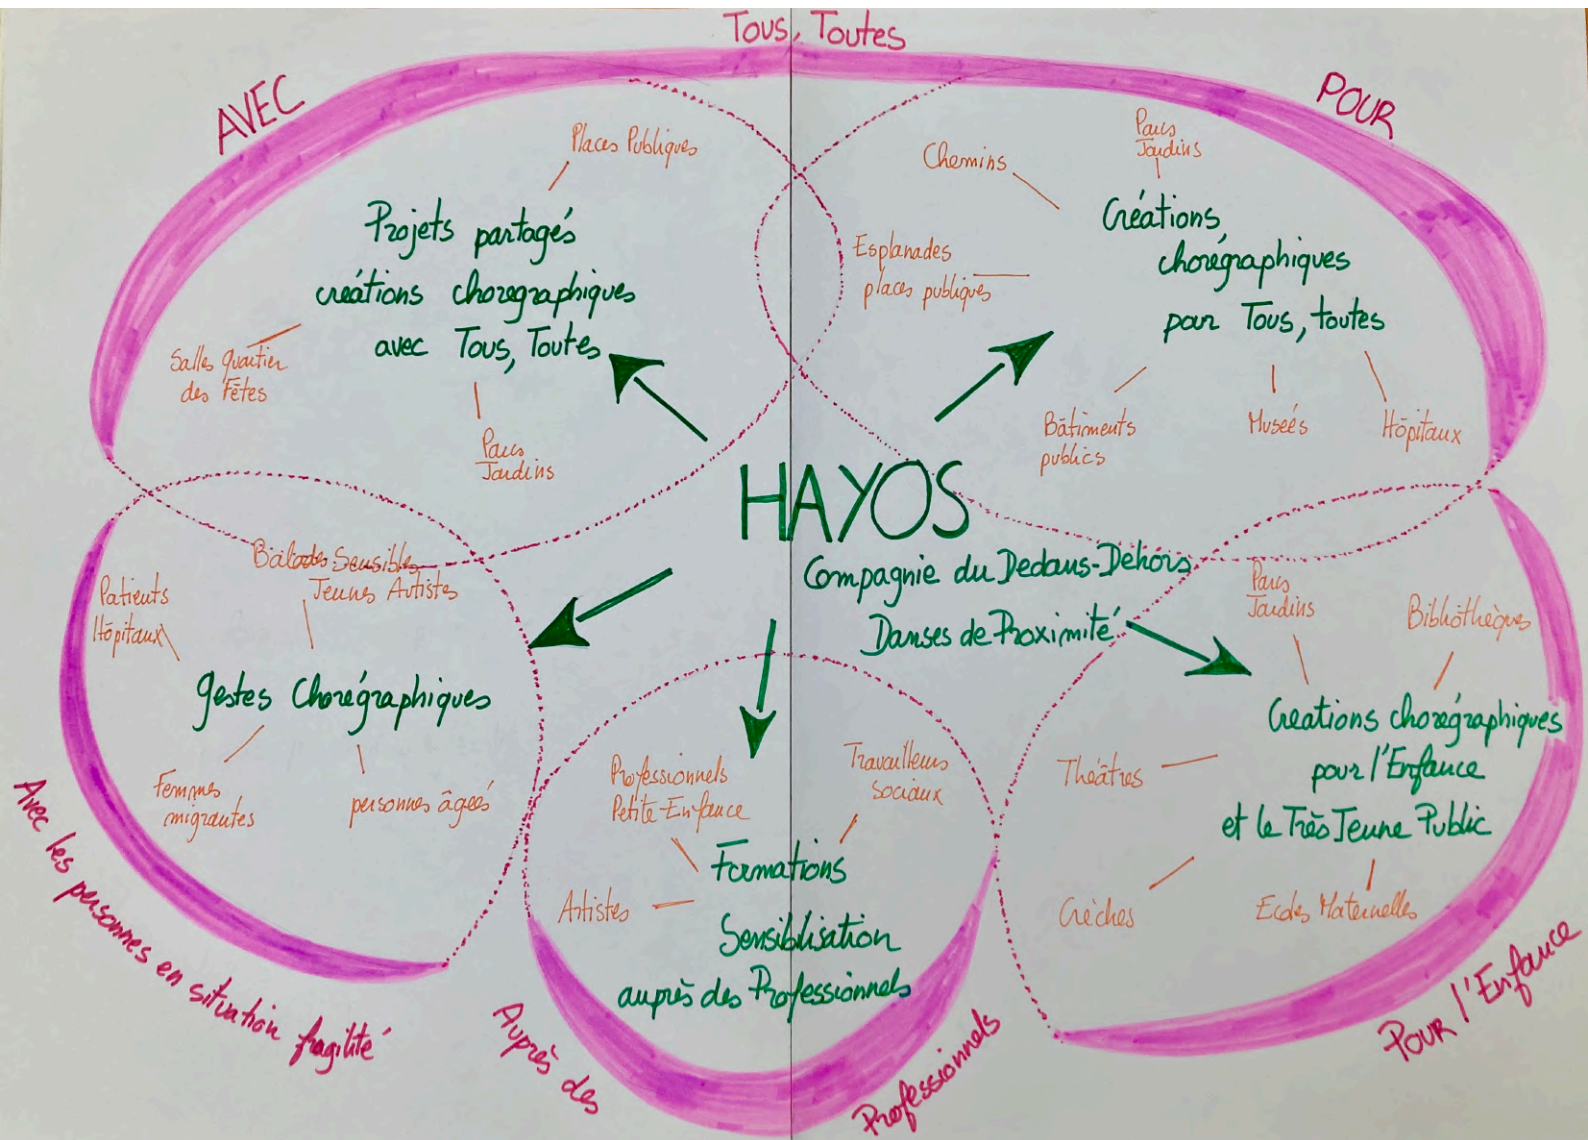 Tous, Toutes
AVEC
POUR
Places Publiques
Projets partagés
créations chorégraphiques
avec Tous, Toutes
Salles quartier
des Fêtes
Parcs
Jardins
Chemins
Parcs
Jardins
Créations,
chorégraphiques
pour Tous, toutes
Esplanades
places publiques
Bâtiments
publics
Museés
Hôpitaux
HAYOS
Compagnie du Dedans-Dehors
Danses de Proximité
Balades Sensibles
Jeunes Artistes
Patients
Hôpitaux
gestes Chorégraphiques
Femmes
migrantes
personnes âgeés
Avec les personnes en situation fragilité
Professionnels
Petite-Enfance
Travailleurs
sociaux
Artistes
Formations
Sensiblisation
auprès des Professionnels
Auprès des
Professionnels
Parcs
Jardins
Bibliothèques
Théâtres
Créations chorégraphiques
pour l'Enfance
et le Très Jeune Public
Crèches
Ecoles Maternelles
POUR l'Enfance